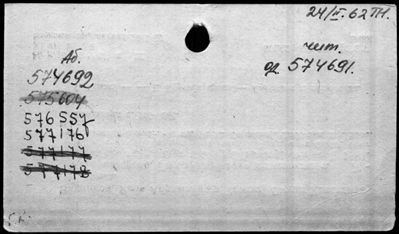 24/II.62 ТП.
Аб.
574692
575604
576557
577176
577177
577178
чит.
ор 574691.